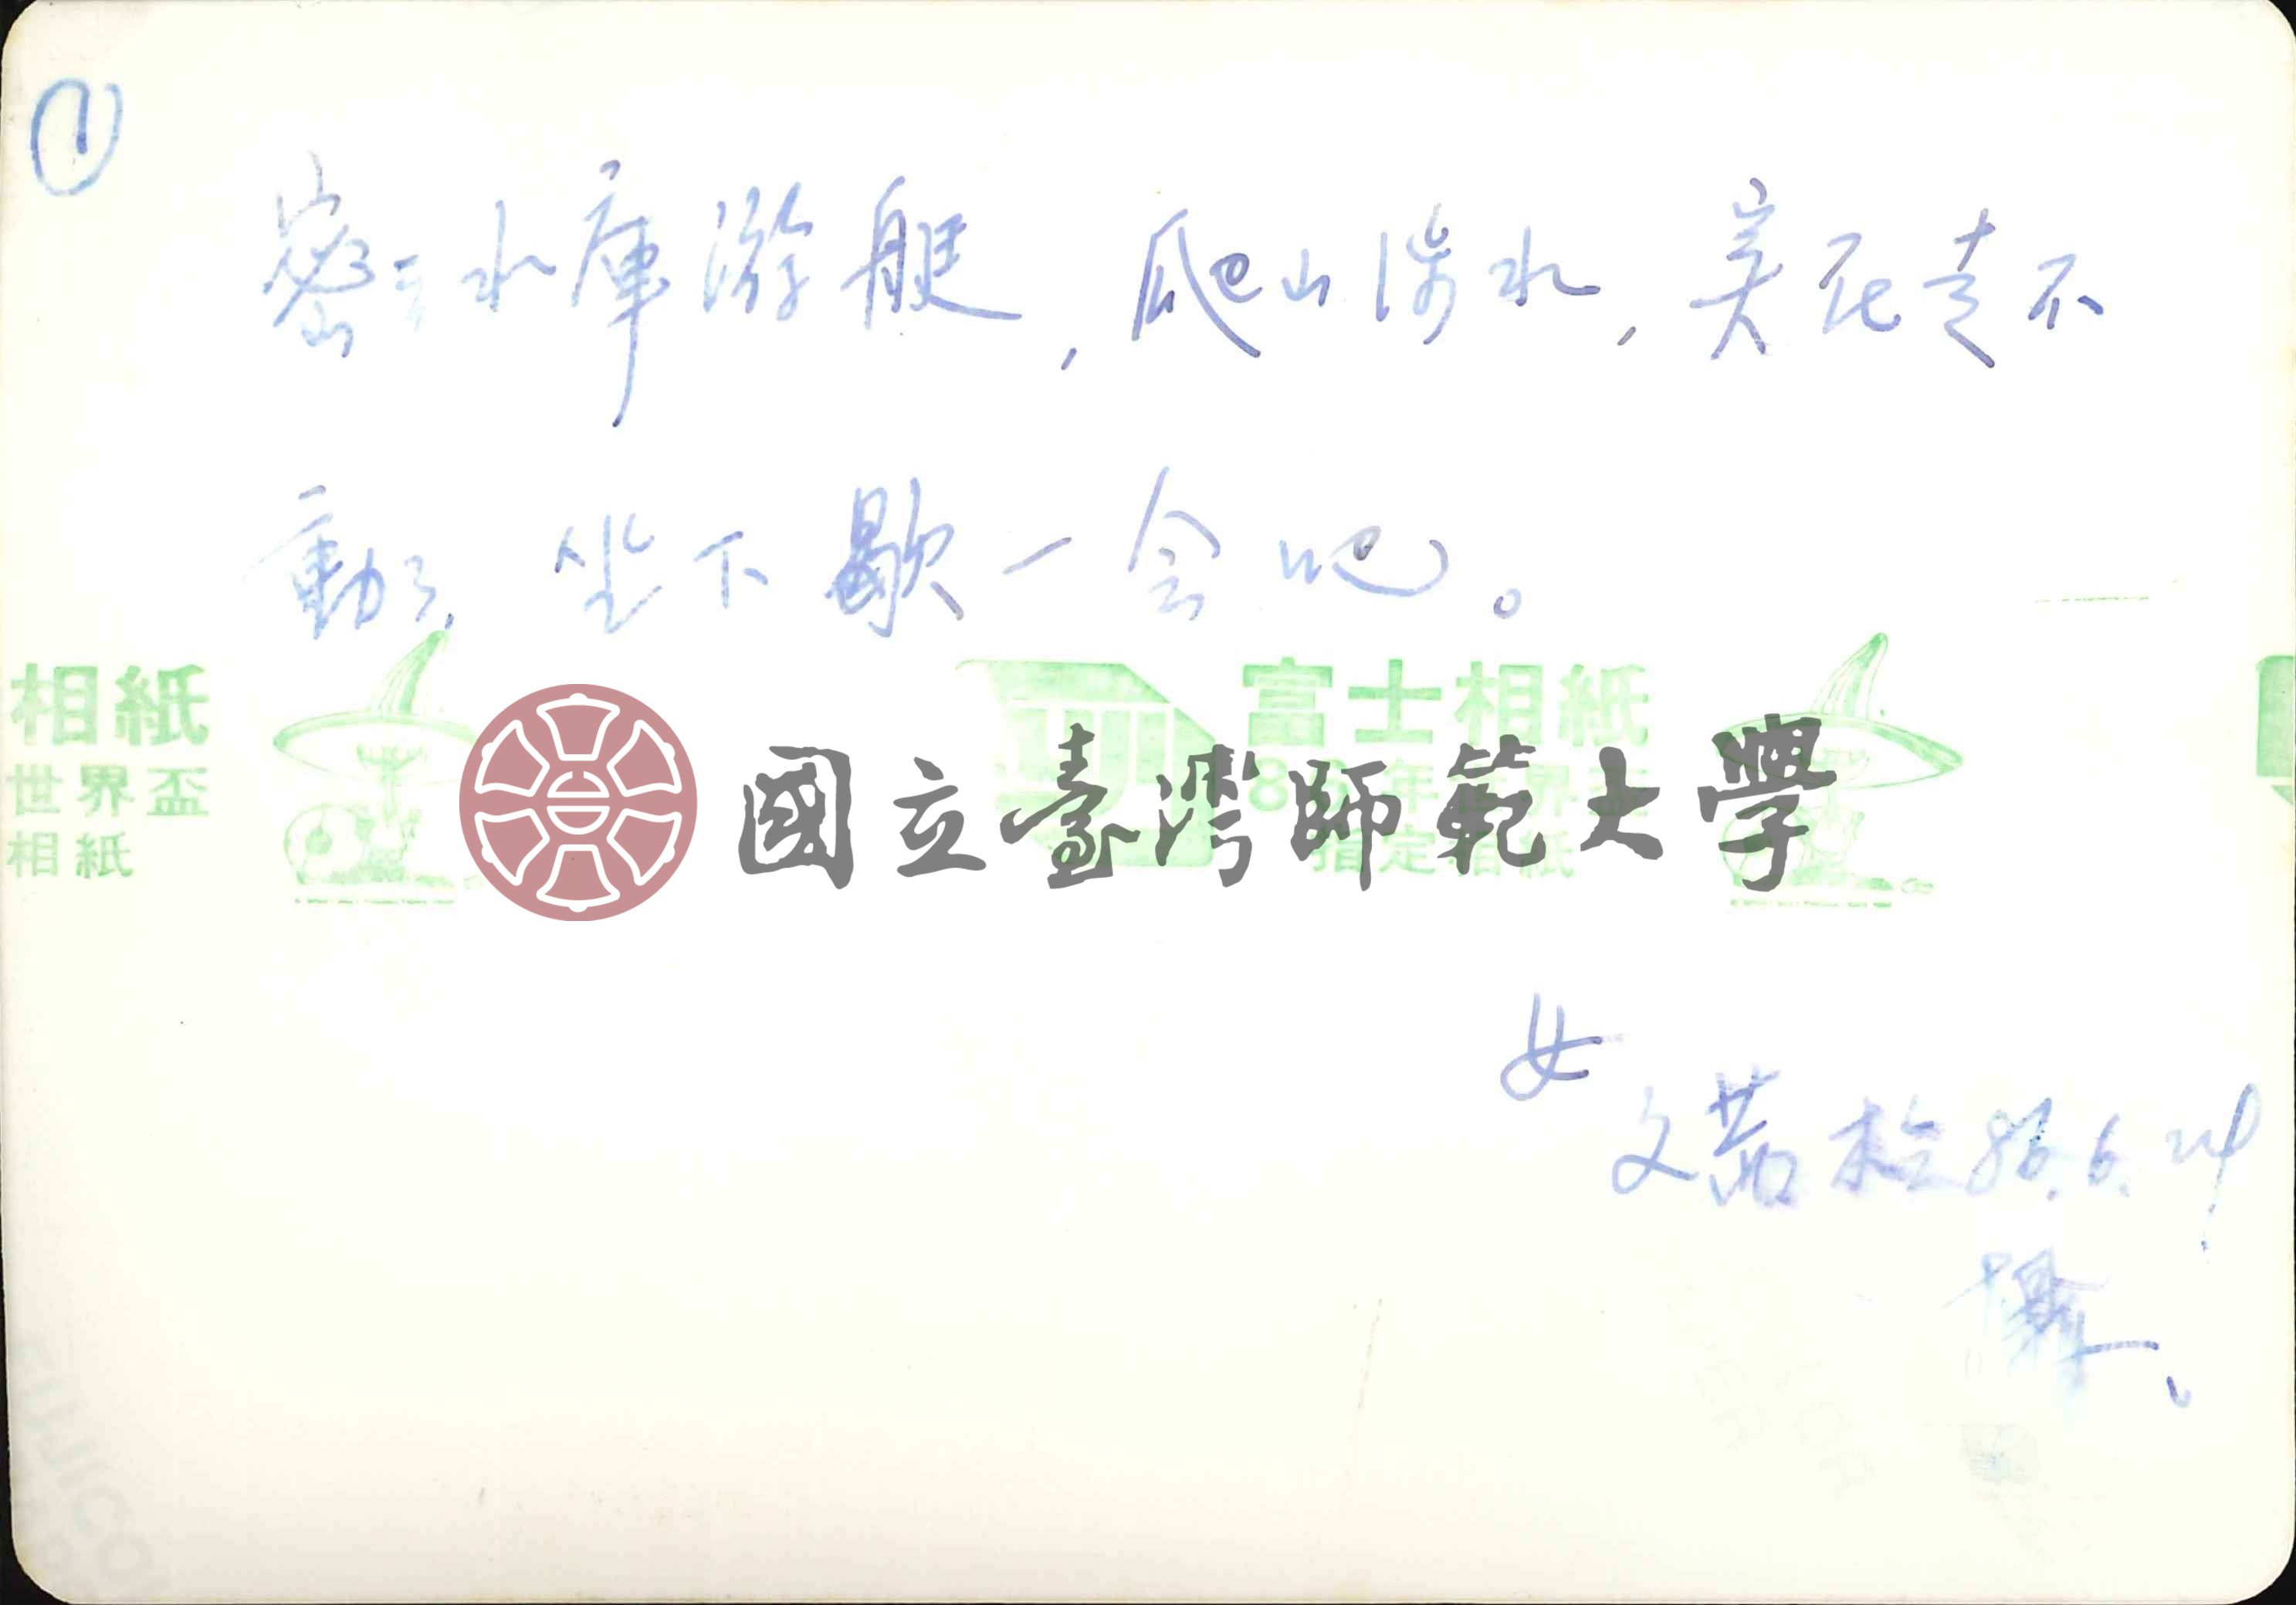 ①
密云水庫游艇,爬山涉水,實在走不
動了,坐下歇一会吧。
相紙
世界盃
相紙
富士相紙
86年世界盃
指定相紙
國立臺灣師範大學
女
文茹 86.6.24
攝、